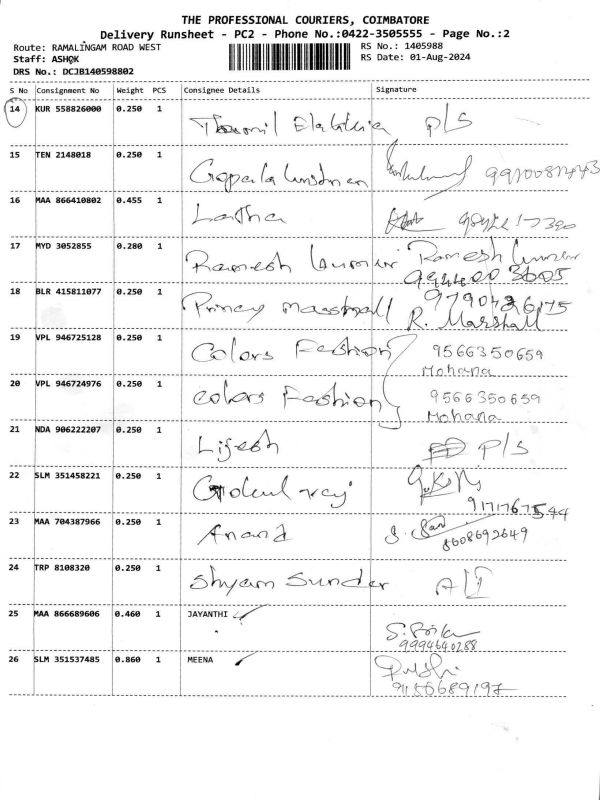 THE PROFESSIONAL COURIERS, COIMBATORE
Delivery Runsheet - PC2 - Phone No.:0422-3505555 - Page No.:2
Route: RAMALINGAM ROAD WEST RS No.: 1405988
Staff: ASHOK RS Date: 01-Aug-2024
DRS No.: DCJB140598802
S No Consignment No Weight PCS Consignee Details Signature
14 KUR 558826000 0.250 1 P/S
15 TEN 2148018 0.250 1
16 MAA 866410802 0.455 1 Latha
17 MYD 3052855 0.280 1 Ramesh kumar Ramesh kumar
9944003605
18 BLR 415811077 0.250 1 Princy Marshall
R. Marshall
19 VPL 946725128 0.250 1 Colors Fashion 9566350659
Mohana
20 VPL 946724976 0.250 1 Colors Fashion 9566350659
Mohana
21 NDA 906222207 0.250 1 Lijesh P/S
22 SLM 351458221 0.250 1 Gokul raj
23 MAA 704387966 0.250 1 Anand
8608692649
24 TRP 8108320 0.250 1 Shyam Sunder
25 MAA 866689606 0.460 1 JAYANTHI
9994640288
26 SLM 351537485 0.860 1 MEENA
9150689197